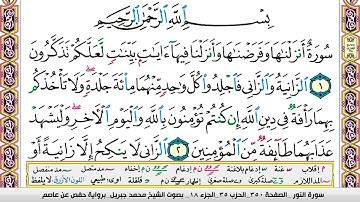 بِسْمِ ٱللَّهِ ٱلرَّحْمَٰنِ ٱلرَّحِيمِ
سُورَةٌ أَنزَلْنَٰهَا وَفَرَضْنَٰهَا وَأَنزَلْنَا فِيهَآ ءَايَٰتٍۭ بَيِّنَٰتٍ لَّعَلَّكُمْ تَذَكَّرُونَ
١ ٱلزَّانِيَةُ وَٱلزَّانِى فَٱجْلِدُوا۟ كُلَّ وَٰحِدٍ مِّنْهُمَا مِا۟ئَةَ جَلْدَةٍ وَلَا تَأْخُذْكُم
بِهِمَا رَأْفَةٌ فِى دِينِ ٱللَّهِ إِن كُنتُمْ تُؤْمِنُونَ بِٱللَّهِ وَٱلْيَوْمِ ٱلْءَاخِرِ وَلْيَشْهَدْ
عَذَابَهُمَا طَآئِفَةٌ مِّنَ ٱلْمُؤْمِنِينَ ٢ ٱلزَّانِى لَا يَنكِحُ إِلَّا زَانِيَةً أَوْ
سورة النور . الصفحة ٣٥٠ . الحزب ٣٥ . الجزء ١٨ . بصوت الشيخ محمد جبريل . برواية حفص عن عاصم